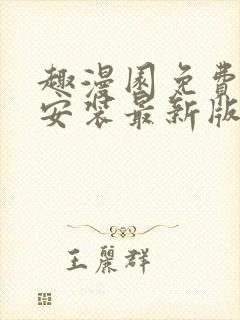 趣漫国免費
安装最新版
王麗群